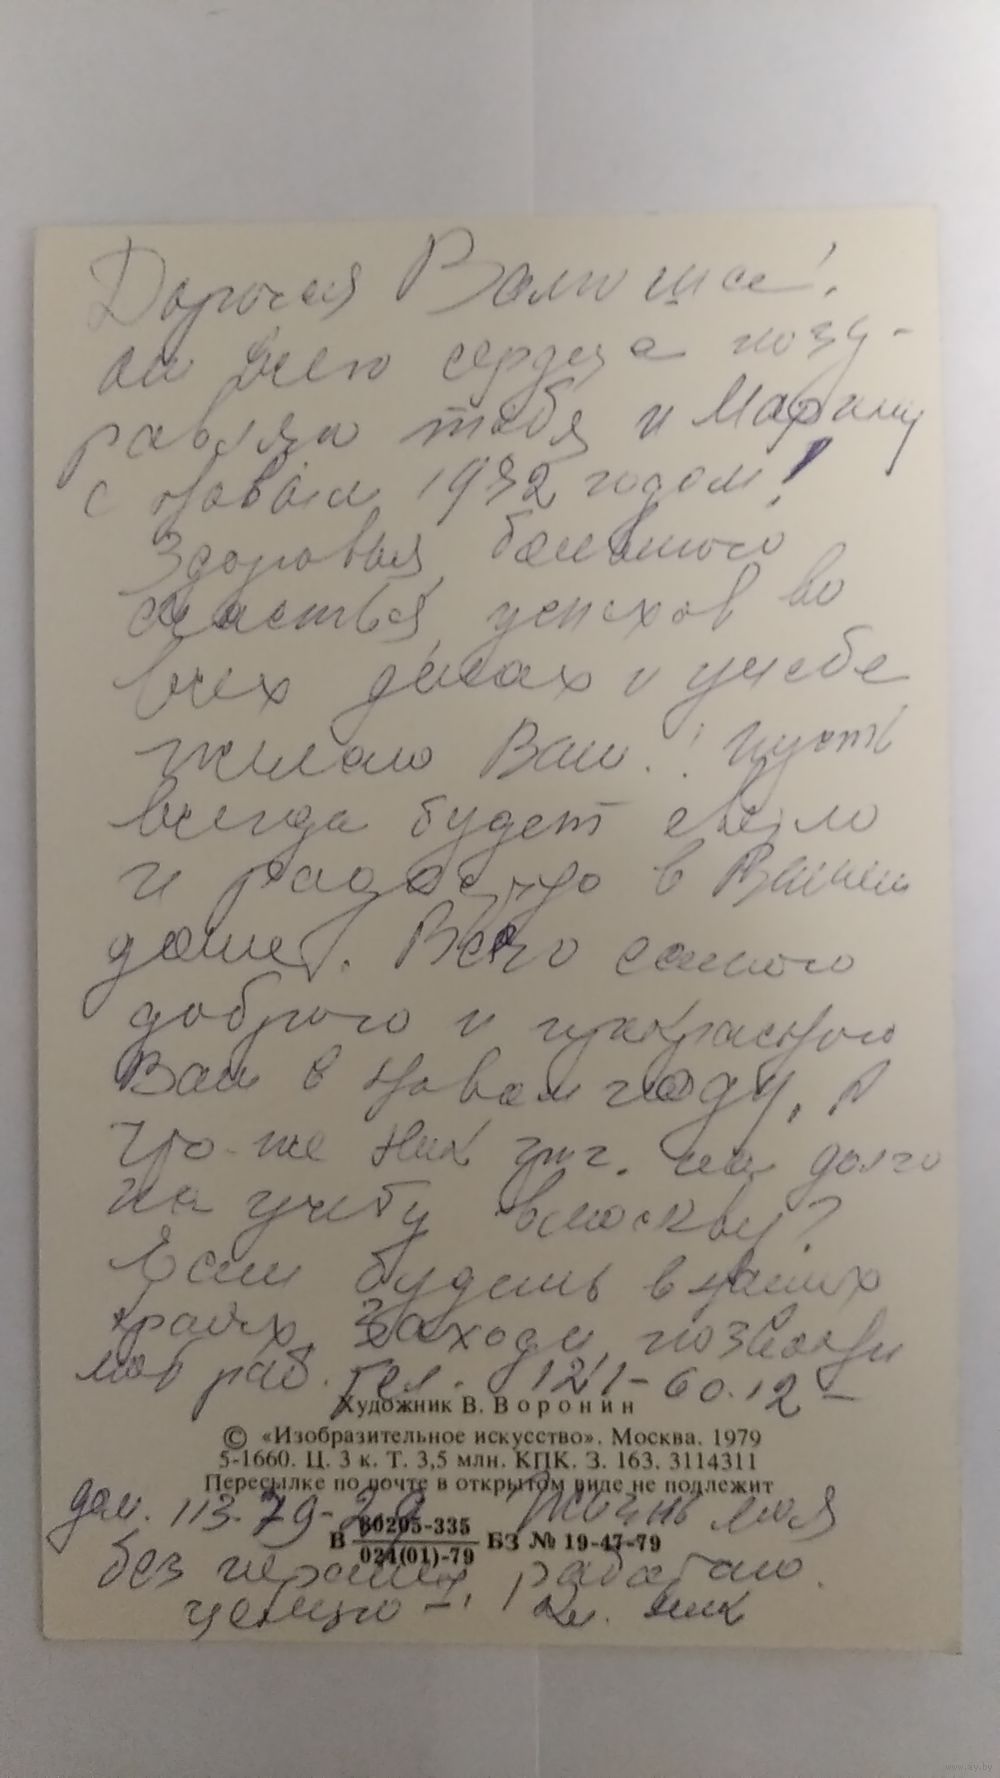 Дорогая Валюша!
От всего сердца позд-
равляю тебя и Марину
с новым 1982 годом!
Здоровья, большого
счастья, успехов во
всех делах и учебе
желаю Вам! Пусть
всегда будет светло
и радостно в Вашем
доме. Всего самого
доброго и прекрасного
Вам в новом году.
что-же Ник на долго
на учебу в москву?
Если будешь в наших
краях, заходи, позвони
мой раб. тел. 121-60.12-
Художник В. Воронин
© «Изобразительное искусство». Москва. 1979
5-1660. Ц. 3 к. Т. 3,5 млн. КПК. З. 163. 3114311
Пересылке по почте в открытом виде не подлежит
дом. 113-79-29 Жизнь моя
В 80205-335 БЗ № 19-47-79
024(01)-79
без перемен, работаю.
целую